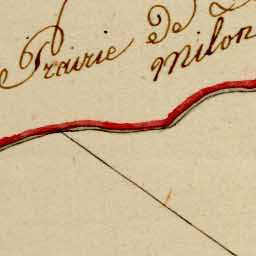 Prairie De
Milon